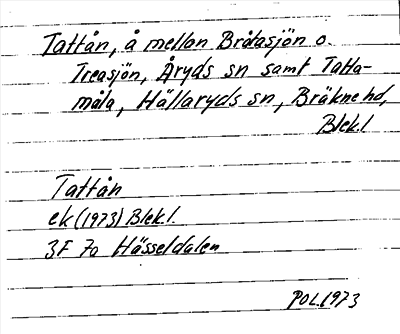 Tattån, å mellan Bråtasjön o.
Treasjön, Åryds sn samt Tatta-
måla, Hällaryds sn, Bräkne hd,
Blek.l
Tattån
ek (1973) Blek.l.
3F 7a Hässeldalen
POL.1973